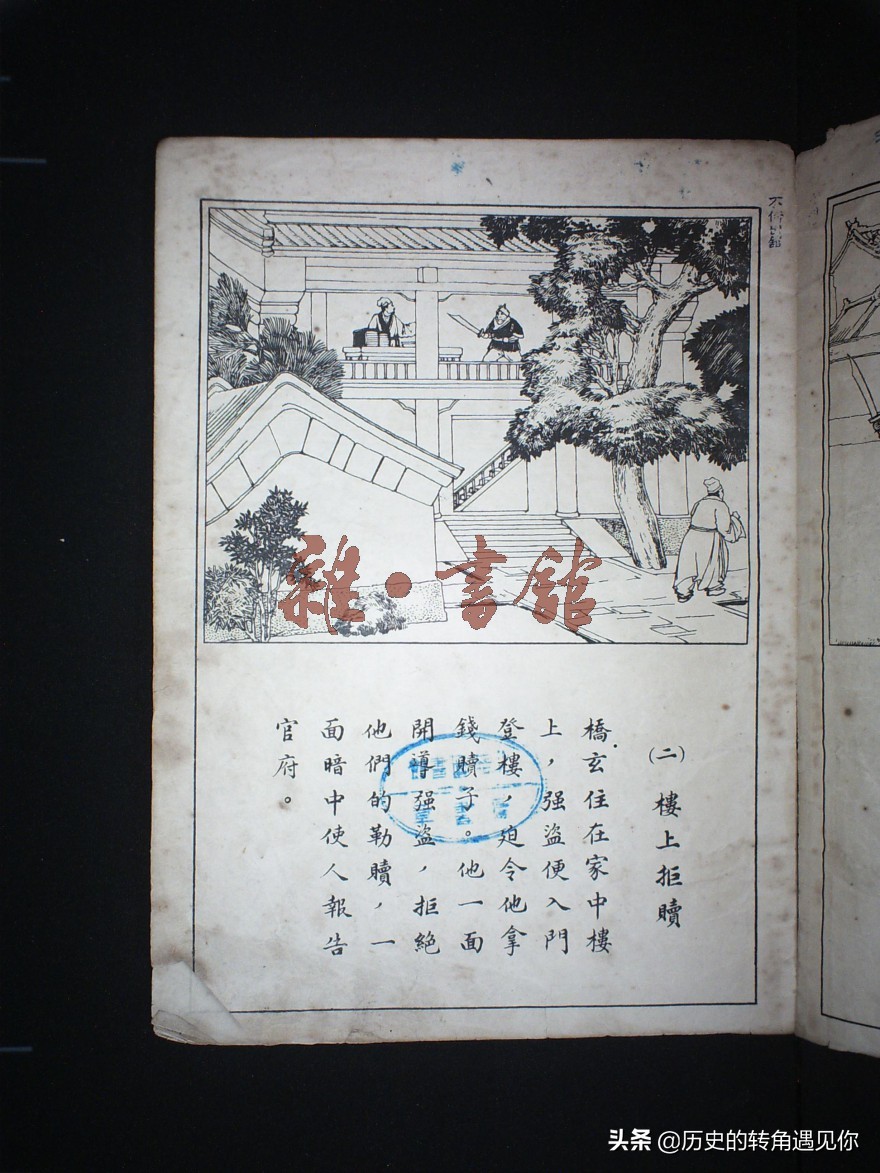 (二) 樓上拒贖
橋玄住在家中樓
上，强盜便入門
登樓，迫令他拿
錢贖子。他一面
開導强盜，拒絶
他們的勒贖，一
面暗中使人報告
官府。
雜·書館
头条 @历史的转角遇见你